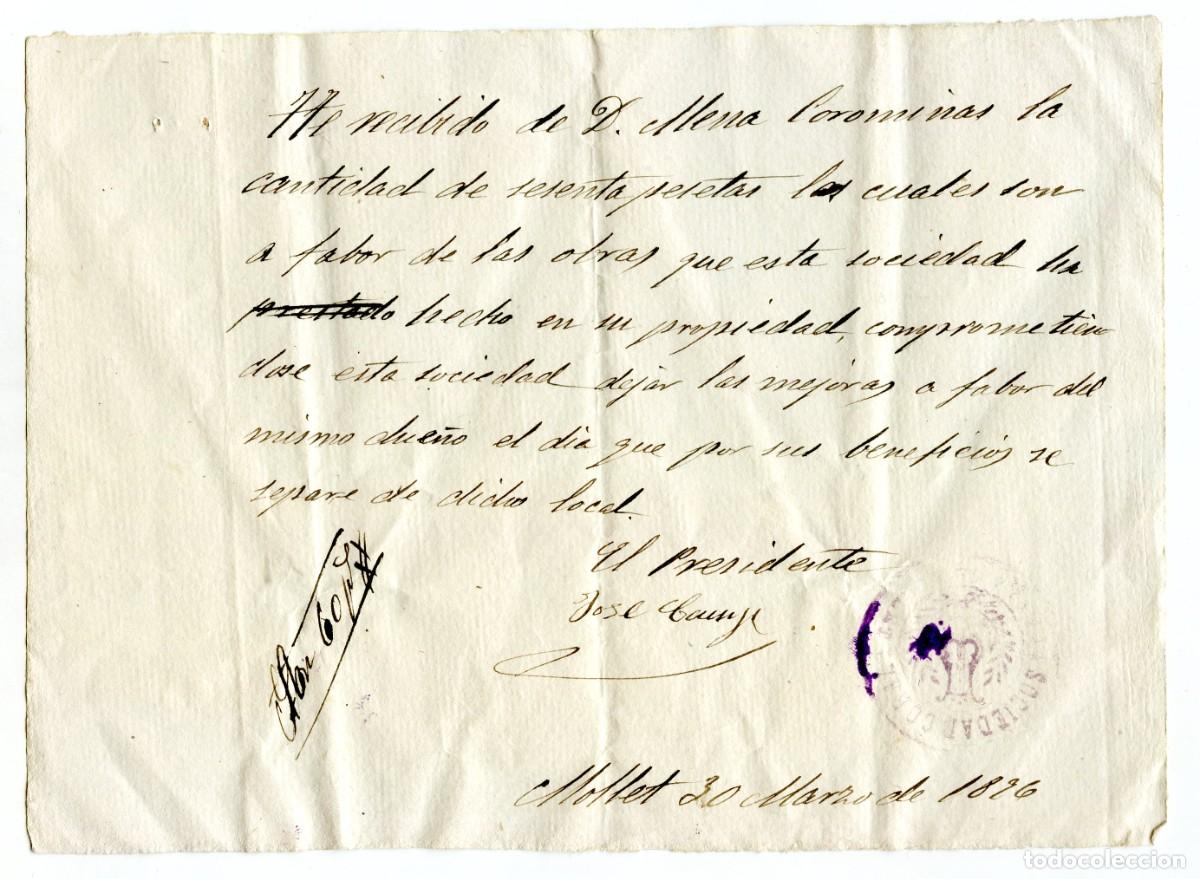 He recibido de D. Mena Corominas la
cantidad de sesenta pesetas las cuales son
a fabor de las obras que esta sociedad ha
prestado hecho en su propiedad, comprometien
dose esta sociedad dejar las mejoras a fabor del
mismo dueño el dia que por sus beneficios se
separe de dicho local.
El Presidente
Jose Camp
Son 60 pts
SOCIEDAD
Mollet 30 Marzo de 1896
todocoleccion